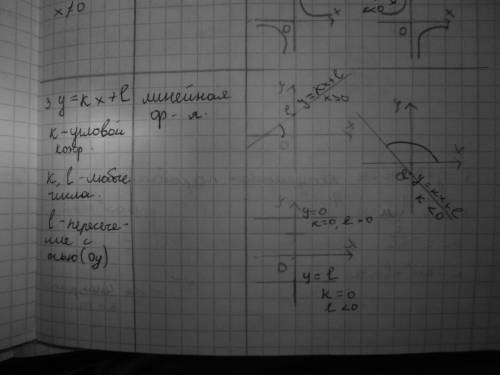 x≠0
0
x
<0
x
0
3. y = kx + l линейная
ф-я.
k - угловой
коэф.
k, l - любые
числа.
l - пересече-
ние с
осью (Oy)
y
y = kx+l
k>0
l
x
0
y
x
y = kx+l
k<0
y
y=0
k=0, l>0
x
0
y = l
k = 0
l<0